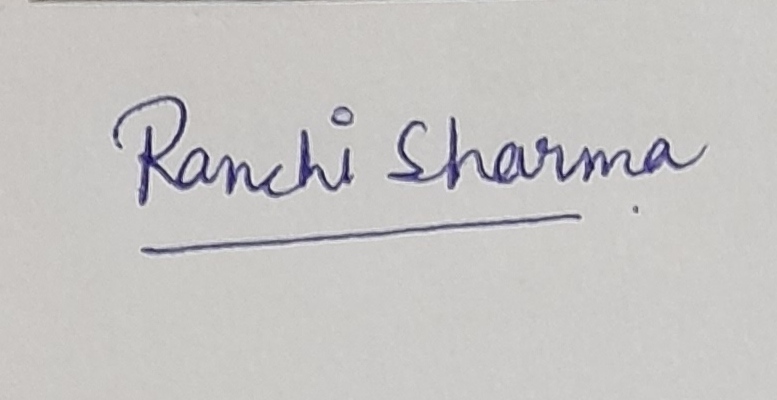 Ranchi Sharma